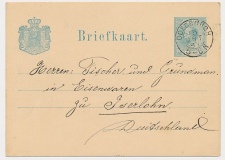 Briefkaart.
Herren Fischer und Grundman,
in Eisenwaren
zu Iserlohn
Deutschland